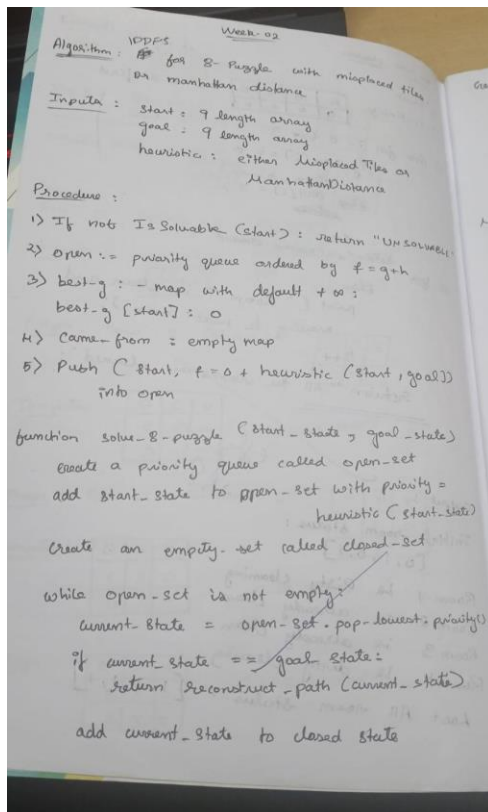 Week-02
Algorithm : IDDFS for 8-Puzzle with misplaced tiles
or manhattan distance
Inputs : start : 9 length array
goal : 9 length array
heuristic : either Misplaced Tiles or
ManhattanDistance
Procedure :
1) If not IsSolvable (start) : return "UNSOLVABLE
2) open := priority queue ordered by f = g+h
3) best-g : - map with default + ∞ :
best-g [start] : 0
4) came-from : empty map
5) Push (start, f = 0 + heuristic (start, goal))
into open
function solve-8-puzzle (start_state, goal-state)
create a priority queue called open-set
add start_state to open-set with priority =
heuristic (start-state)
create an empty-set called closed-set
while open-set is not empty:
current_state = open-set.pop-lowest.priority()
if current_state == goal state:
return reconstruct_path (current_state)
add current_state to closed state